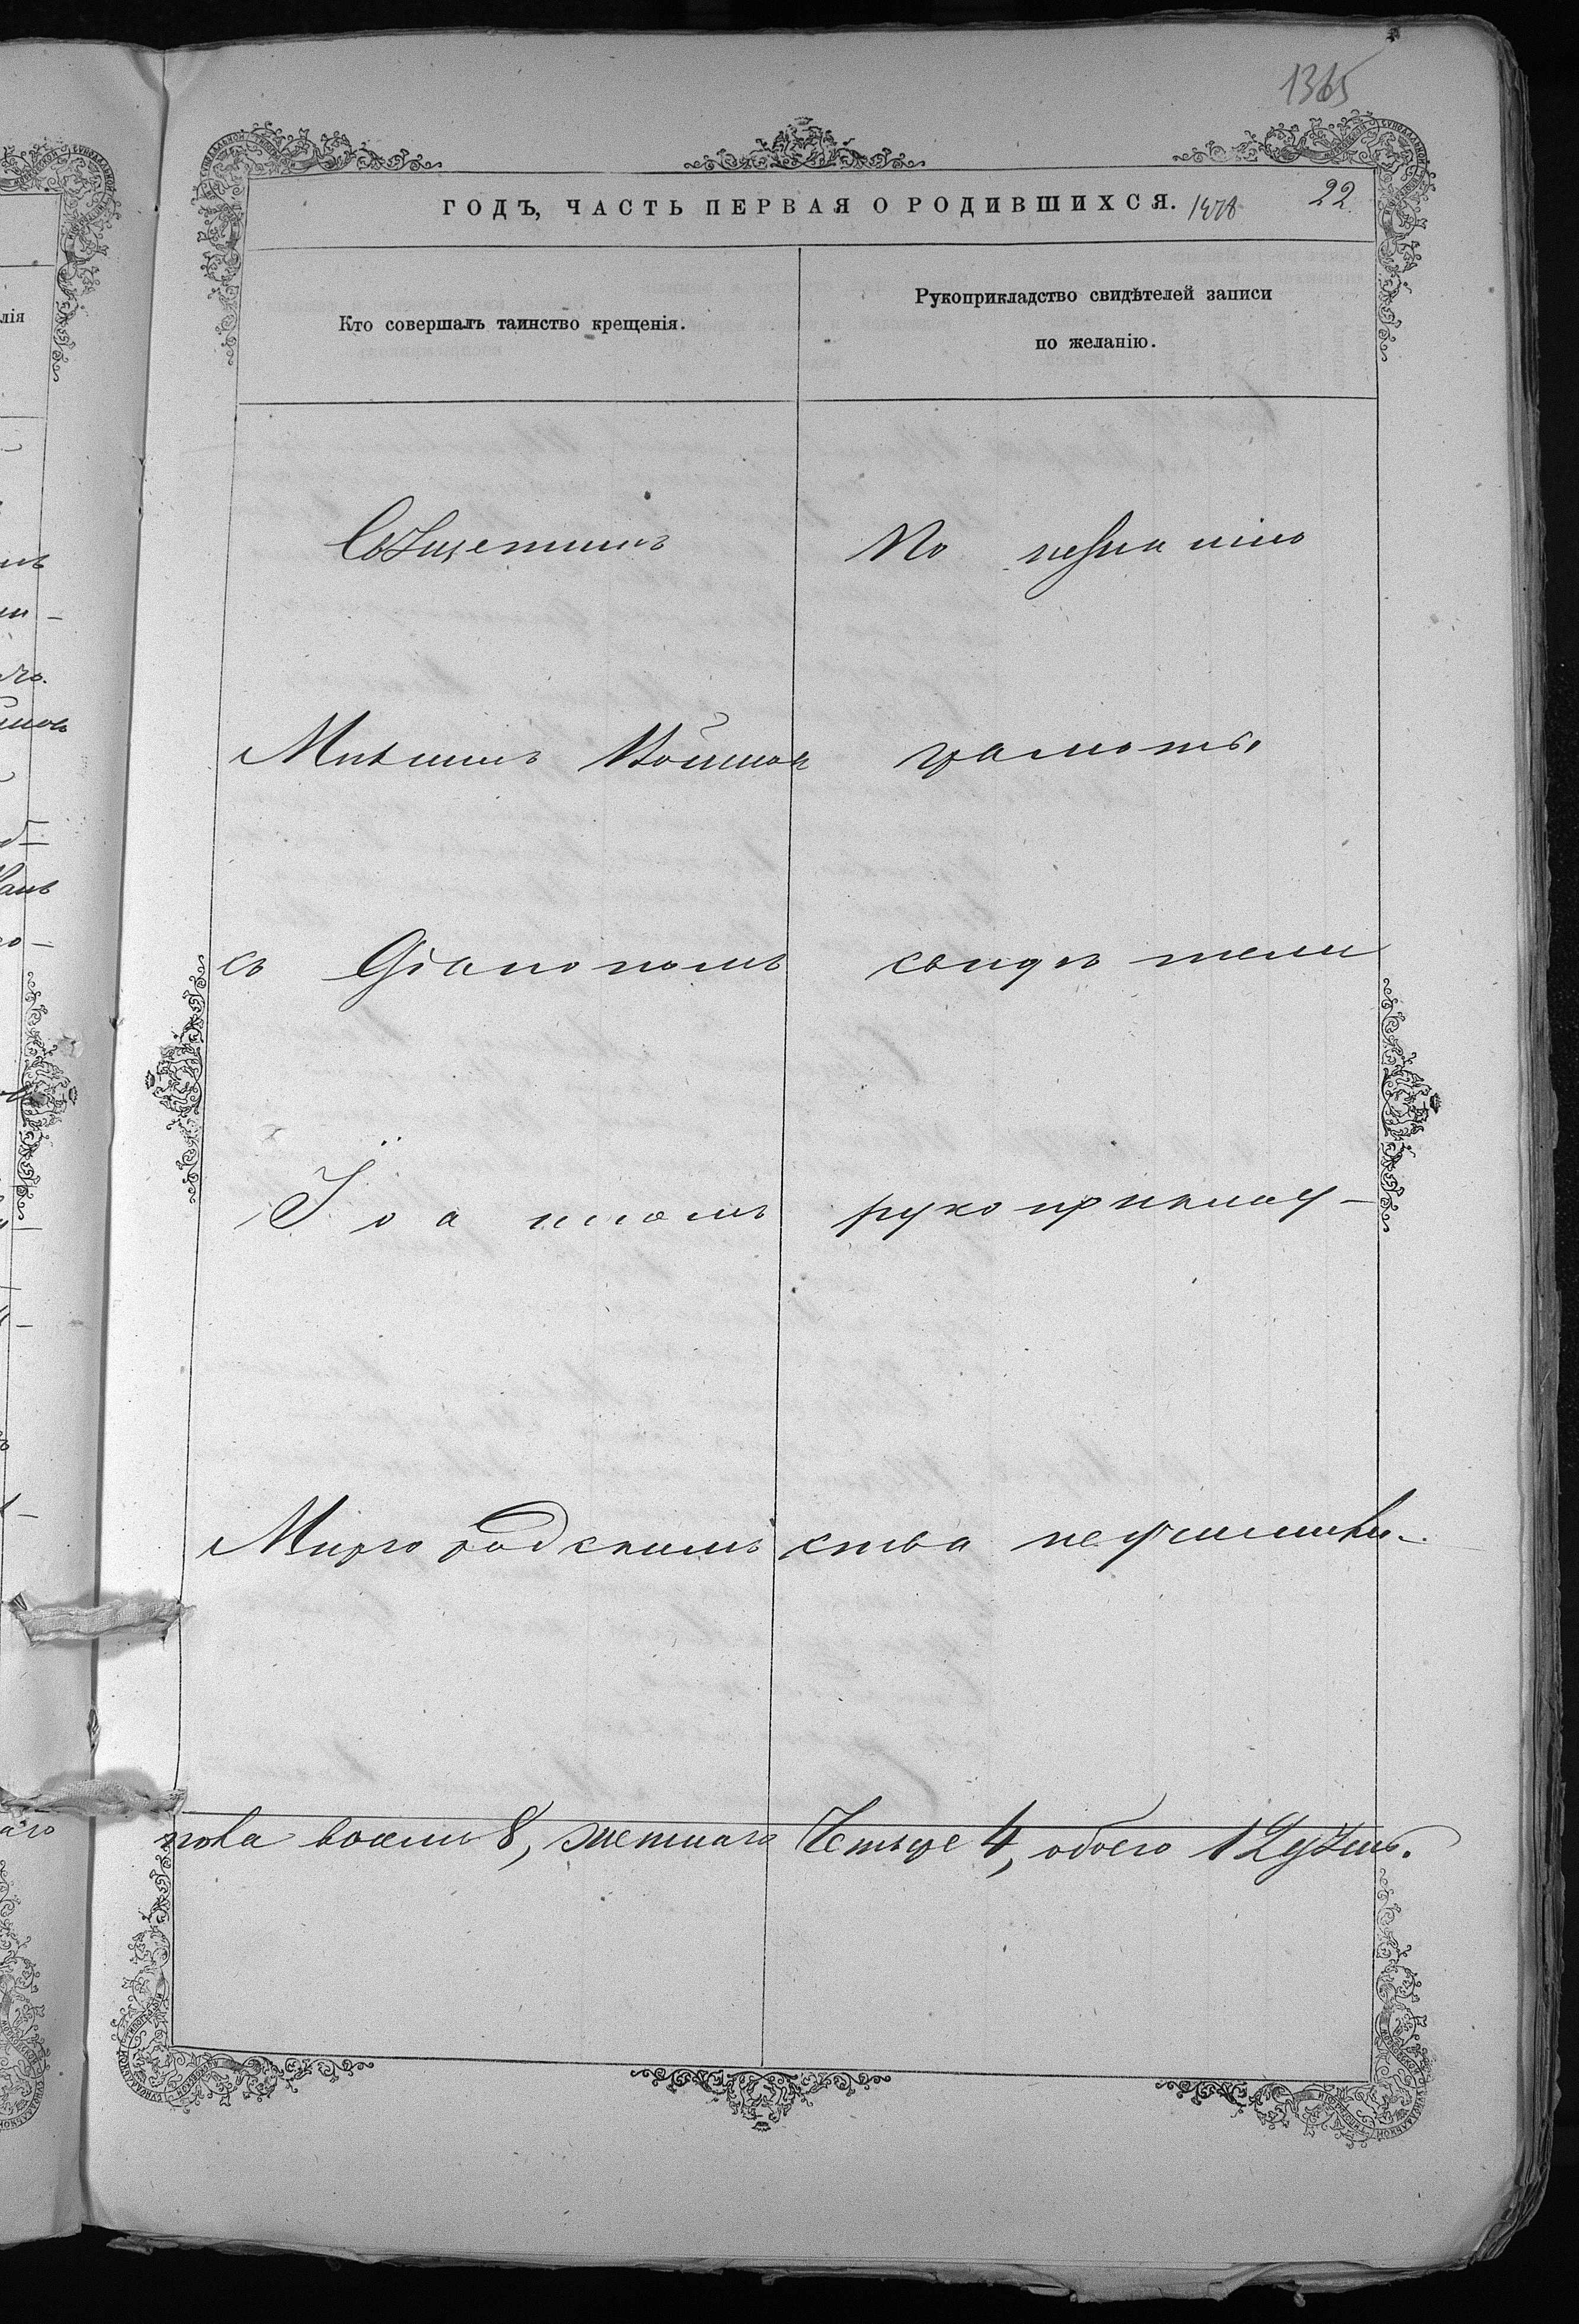 1365
ГОДЪ, ЧАСТЬ ПЕРВАЯ О РОДИВШИХСЯ. 1878
22
Кто совершалъ таинство крещенія.
Рукоприкладство свидѣтелей записи
по желанію.
Священникъ
По незнанію
грамоты,
съ Діакономъ
свидѣтели
Іоанномъ
рукоприклад-
Миргородскимъ
ства не учинили.
пола восемь 8, женскаго Четыре 4, обоего 12 душъ.